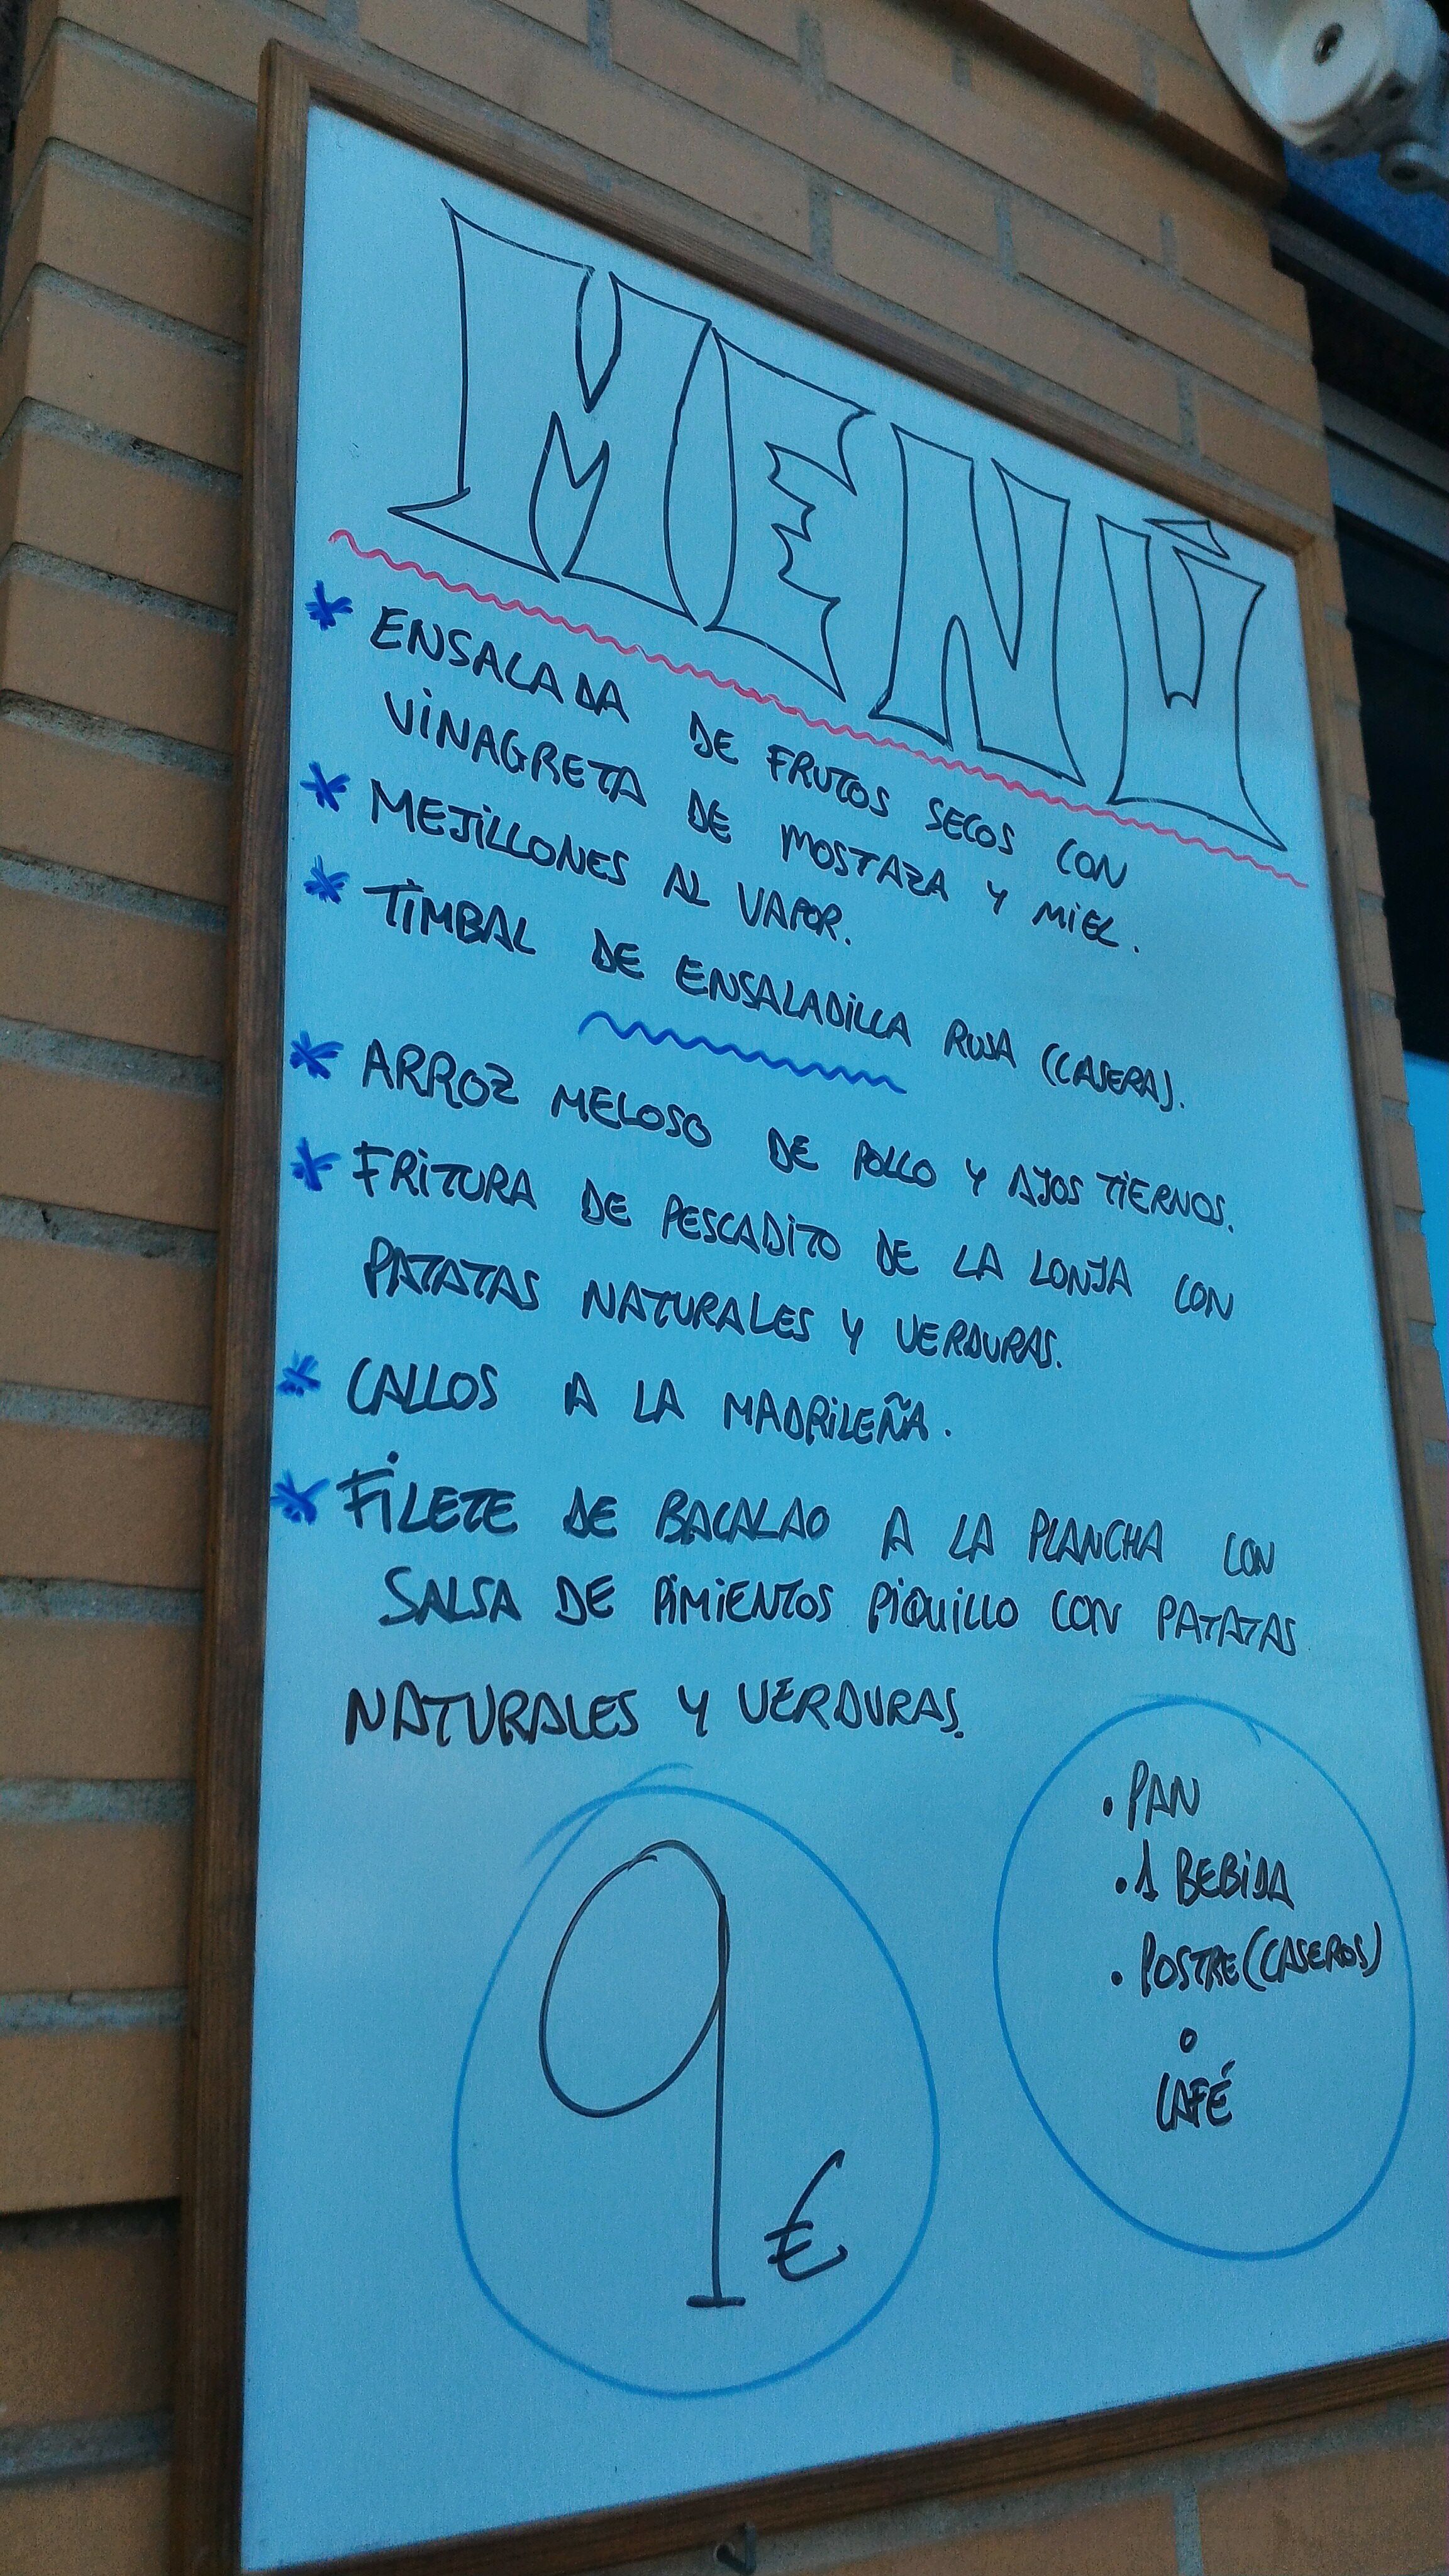 MENÚ
* ENSALADA DE FRUTOS SECOS CON
VINAGRETA DE MOSTAZA Y MIEL.
* MEJILLONES AL VAPOR.
* TIMBAL DE ENSALADILLA RUSA (CASERA).
* ARROZ MELOSO DE POLLO Y AJOS TIERNOS.
* FRITURA DE PESCADITO DE LA LONJA CON
PATATAS NATURALES Y VERDURAS.
* CALLOS A LA MADRILEÑA.
* FILETE DE BACALAO A LA PLANCHA CON
SALSA DE PIMIENTOS PIQUILLO CON PATATAS
NATURALES Y VERDURAS.
9 €
• PAN
• 1 BEBIDA
• POSTRE (CASEROS)
O
CAFÉ